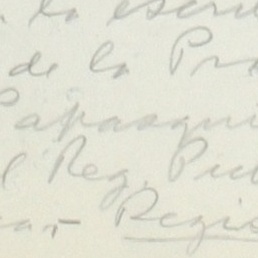 la escri
de la Pro
Papasqui
l Reg. Pub
ca,- Regis